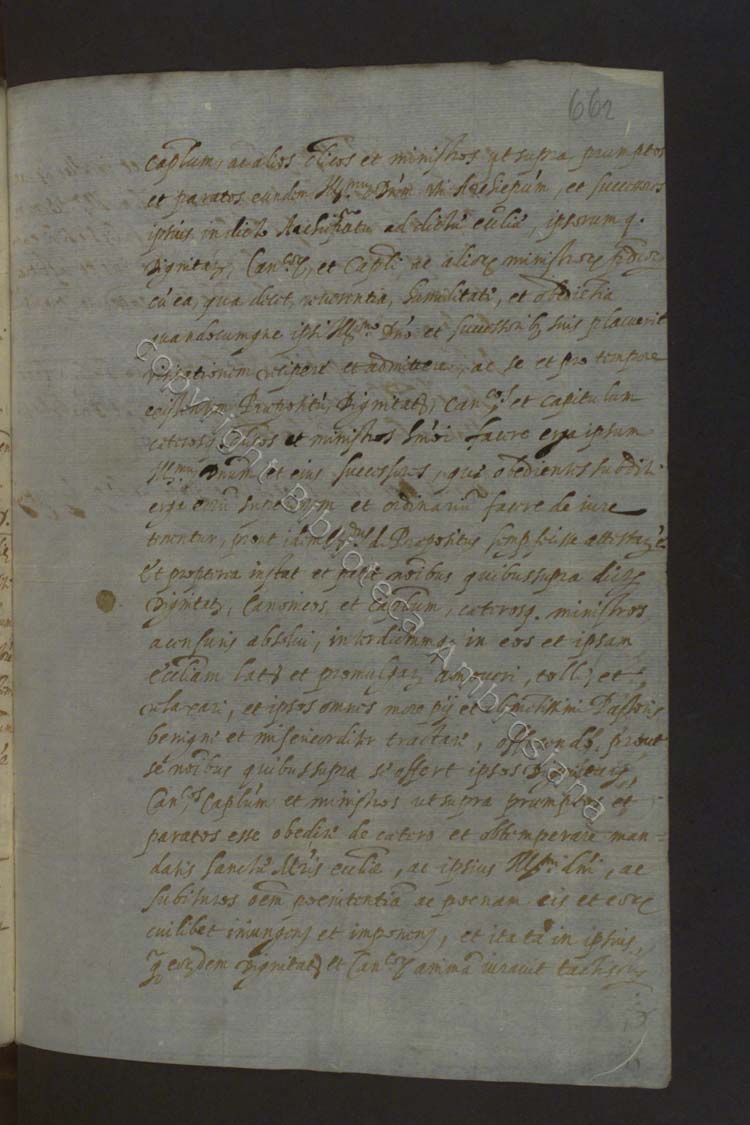 662
Caplum, ac alios Clicos et ministros ut supra, promptos
et paratos eundem Ill.mu Dnum Archiepum, et successores
ipsius in dicto Archiepatu ad dictã eccliã, ipsorum q.
Dignitat, Can.cor, et Capli ac alior ministror
cũ ea, qua decet, reverentia, humilitate, et obedientia
quandocumque ipsi Ill.mo Dno et successoribus suis placuerit
visitationem recipere et admittere, ac se et pro tempore
Propositũ, Dignitat, Can.cos et Capitulum
ceteros Clicos et ministros hmõi facere erga ipsum
Ill.mum Dnum et eius successores, que obedientes subditi
erga eorũ superiorem et ordinariũ facere de iure
tenentur, prout idem d. Propositus semp fecisse
Et propterea instat et petit noibus quibus supra
Dignitat, Canonicos, et Caplum, ceterosq. ministros
a censuris absolui, interdictumq. in eos et ipsam
eccliam lat et promulgat amoveri, tolli, et
relaxari, et ipsos omnes more pij et clementissimi Pastoris
benigne et misericorditer tractari, offerendo, prout
se noibus quibus supra se offert ipsos Dignitat,
Can.cos Caplum et ministros ut supra promptos et
paratos esse obedire de cetero et obtemperare man-
datis sanctæ Mris ecclie, ac ipsius Ill.mi dni, ac
subituros oem poenitentiã ac poenam eis et eor
cuilibet iniungend et imponend, et ita tã in ipsius,
q eordem Dignitat et Can.cor animã iuravit tactis
copyright Biblioteca Ambrosiana